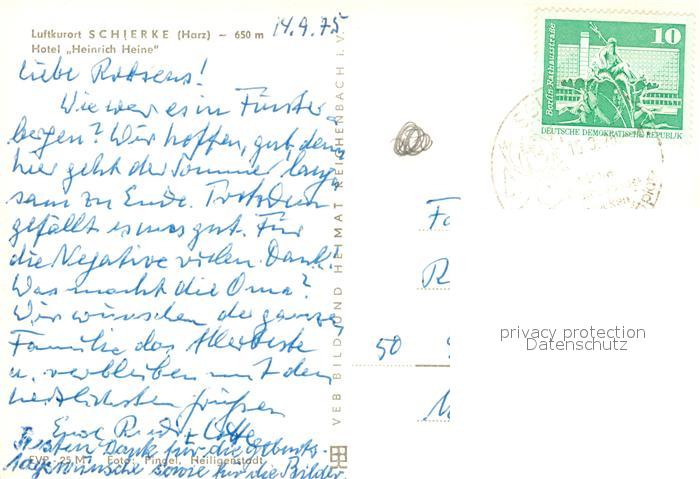 Luftkurort SCHIERKE (Harz) – 650 m 14.9.75
Hotel „Heinrich Heine"
Liebe
Wie war es in Fünster
bergen? Wir hoffen, gut, denn
hier geht der Sommer lang
sam zu Ende. Trotzdem
gefällt es uns gut. Für
die Negative vielen Dank!
Was macht die Oma?
Wir wünschen der ganzen
Familie das Allerbeste
u. verbleiben mit den
herzlichsten Grüßen
Eure Lotte
Besten Dank für die Geburts-
tagswünsche sowie für die Bilder.
EVP -,25 M Foto: Pingel, Heiligenstadt
VEB BILD UND HEIMAT REICHENBACH i. V.
10
Berlin · Rathausstraße
DEUTSCHE DEMOKRATISCHE REPUBLIK
Fa
R
50
privacy protection
Datenschutz